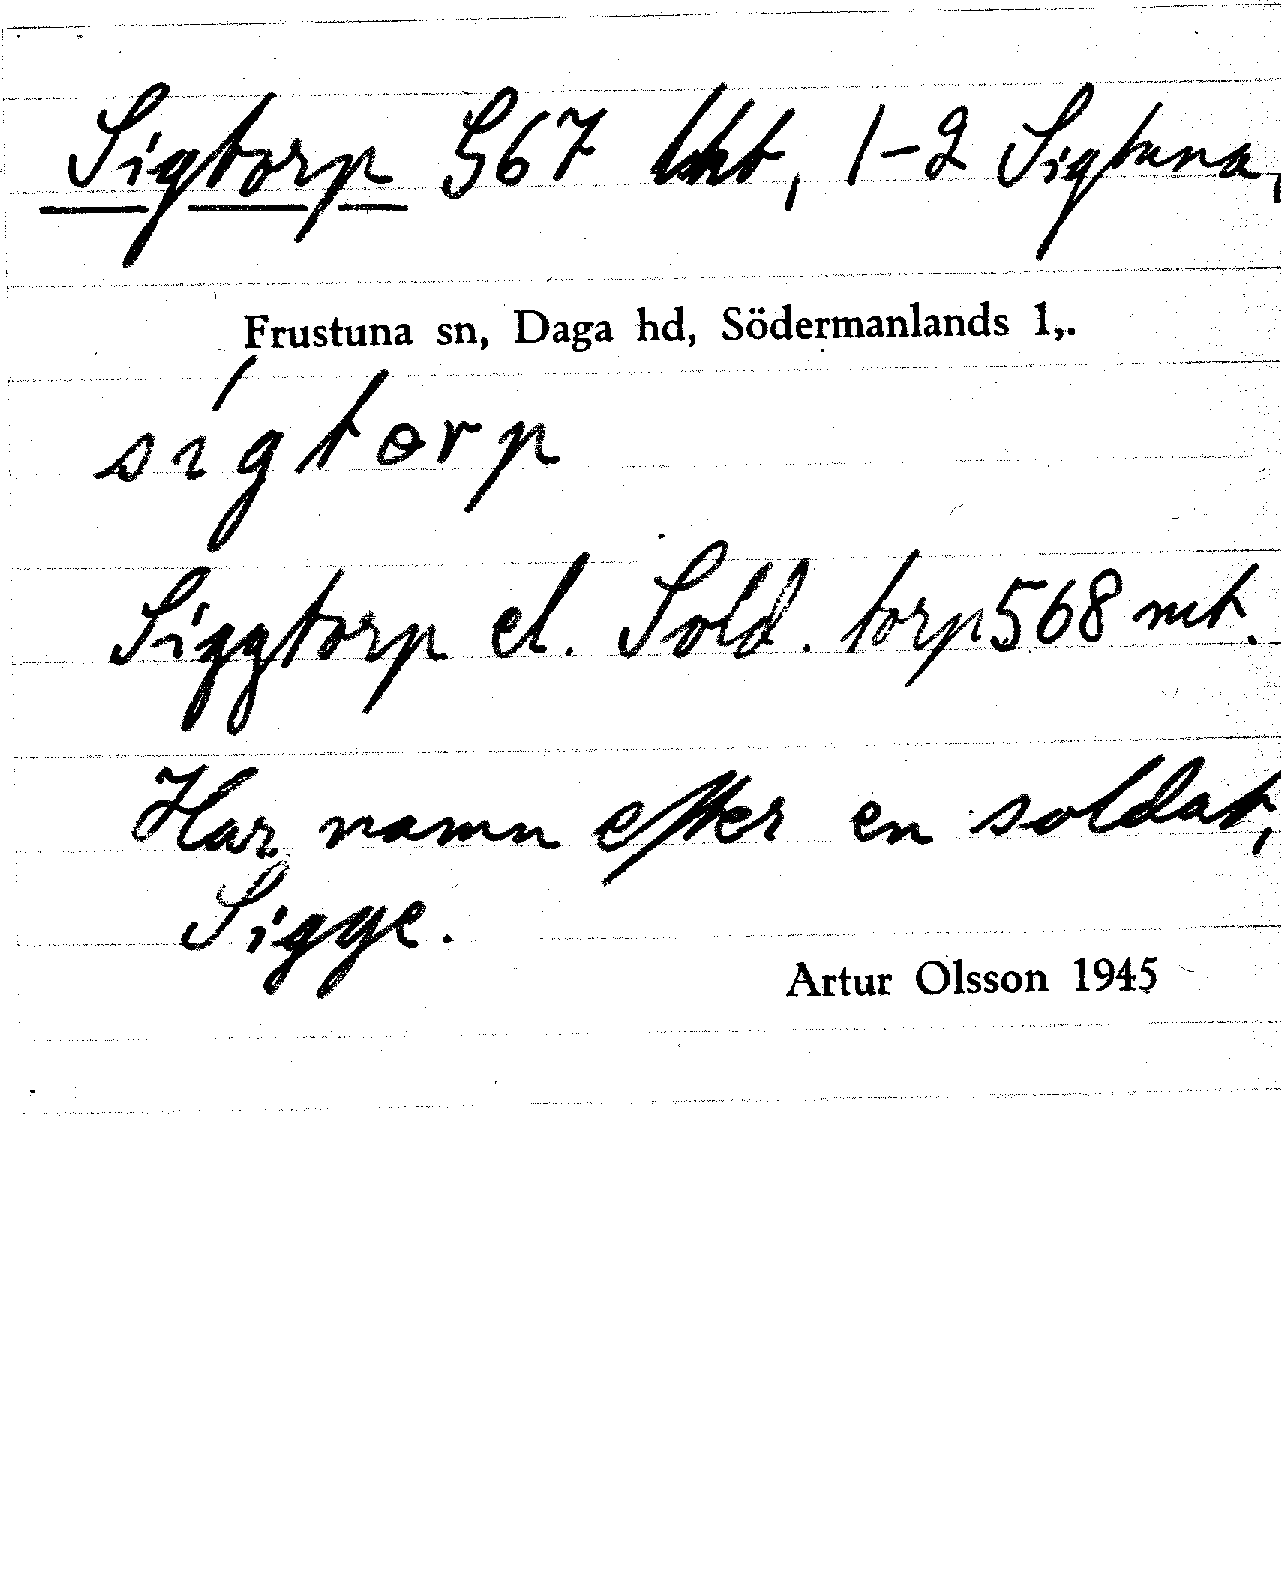 Sigtorp 567 lht, 1-2 Sigtuna,
Frustuna sn, Daga hd, Södermanlands l,.
sígtorp
Siggtorp el. Sold. torp 568 mt.
Har namn efter en soldat,
Sigge.
Artur Olsson 1945